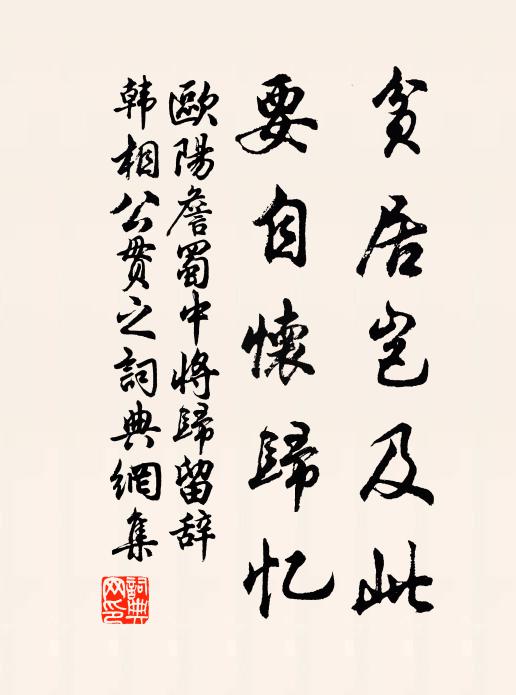 貧居豈及此
要自懷歸忆
歐陽詹蜀中將歸留辞
韩相公贯之詞典網集
詞典网印